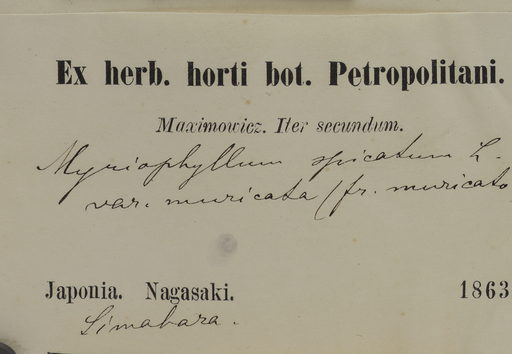 Ex herb. horti bot. Petropolitani.
Maximowicz. Iter secundum.
Myriophyllum spicatum L.
var. muricata (fr. muricato
Japonia. Nagasaki. 1863
Simabara.